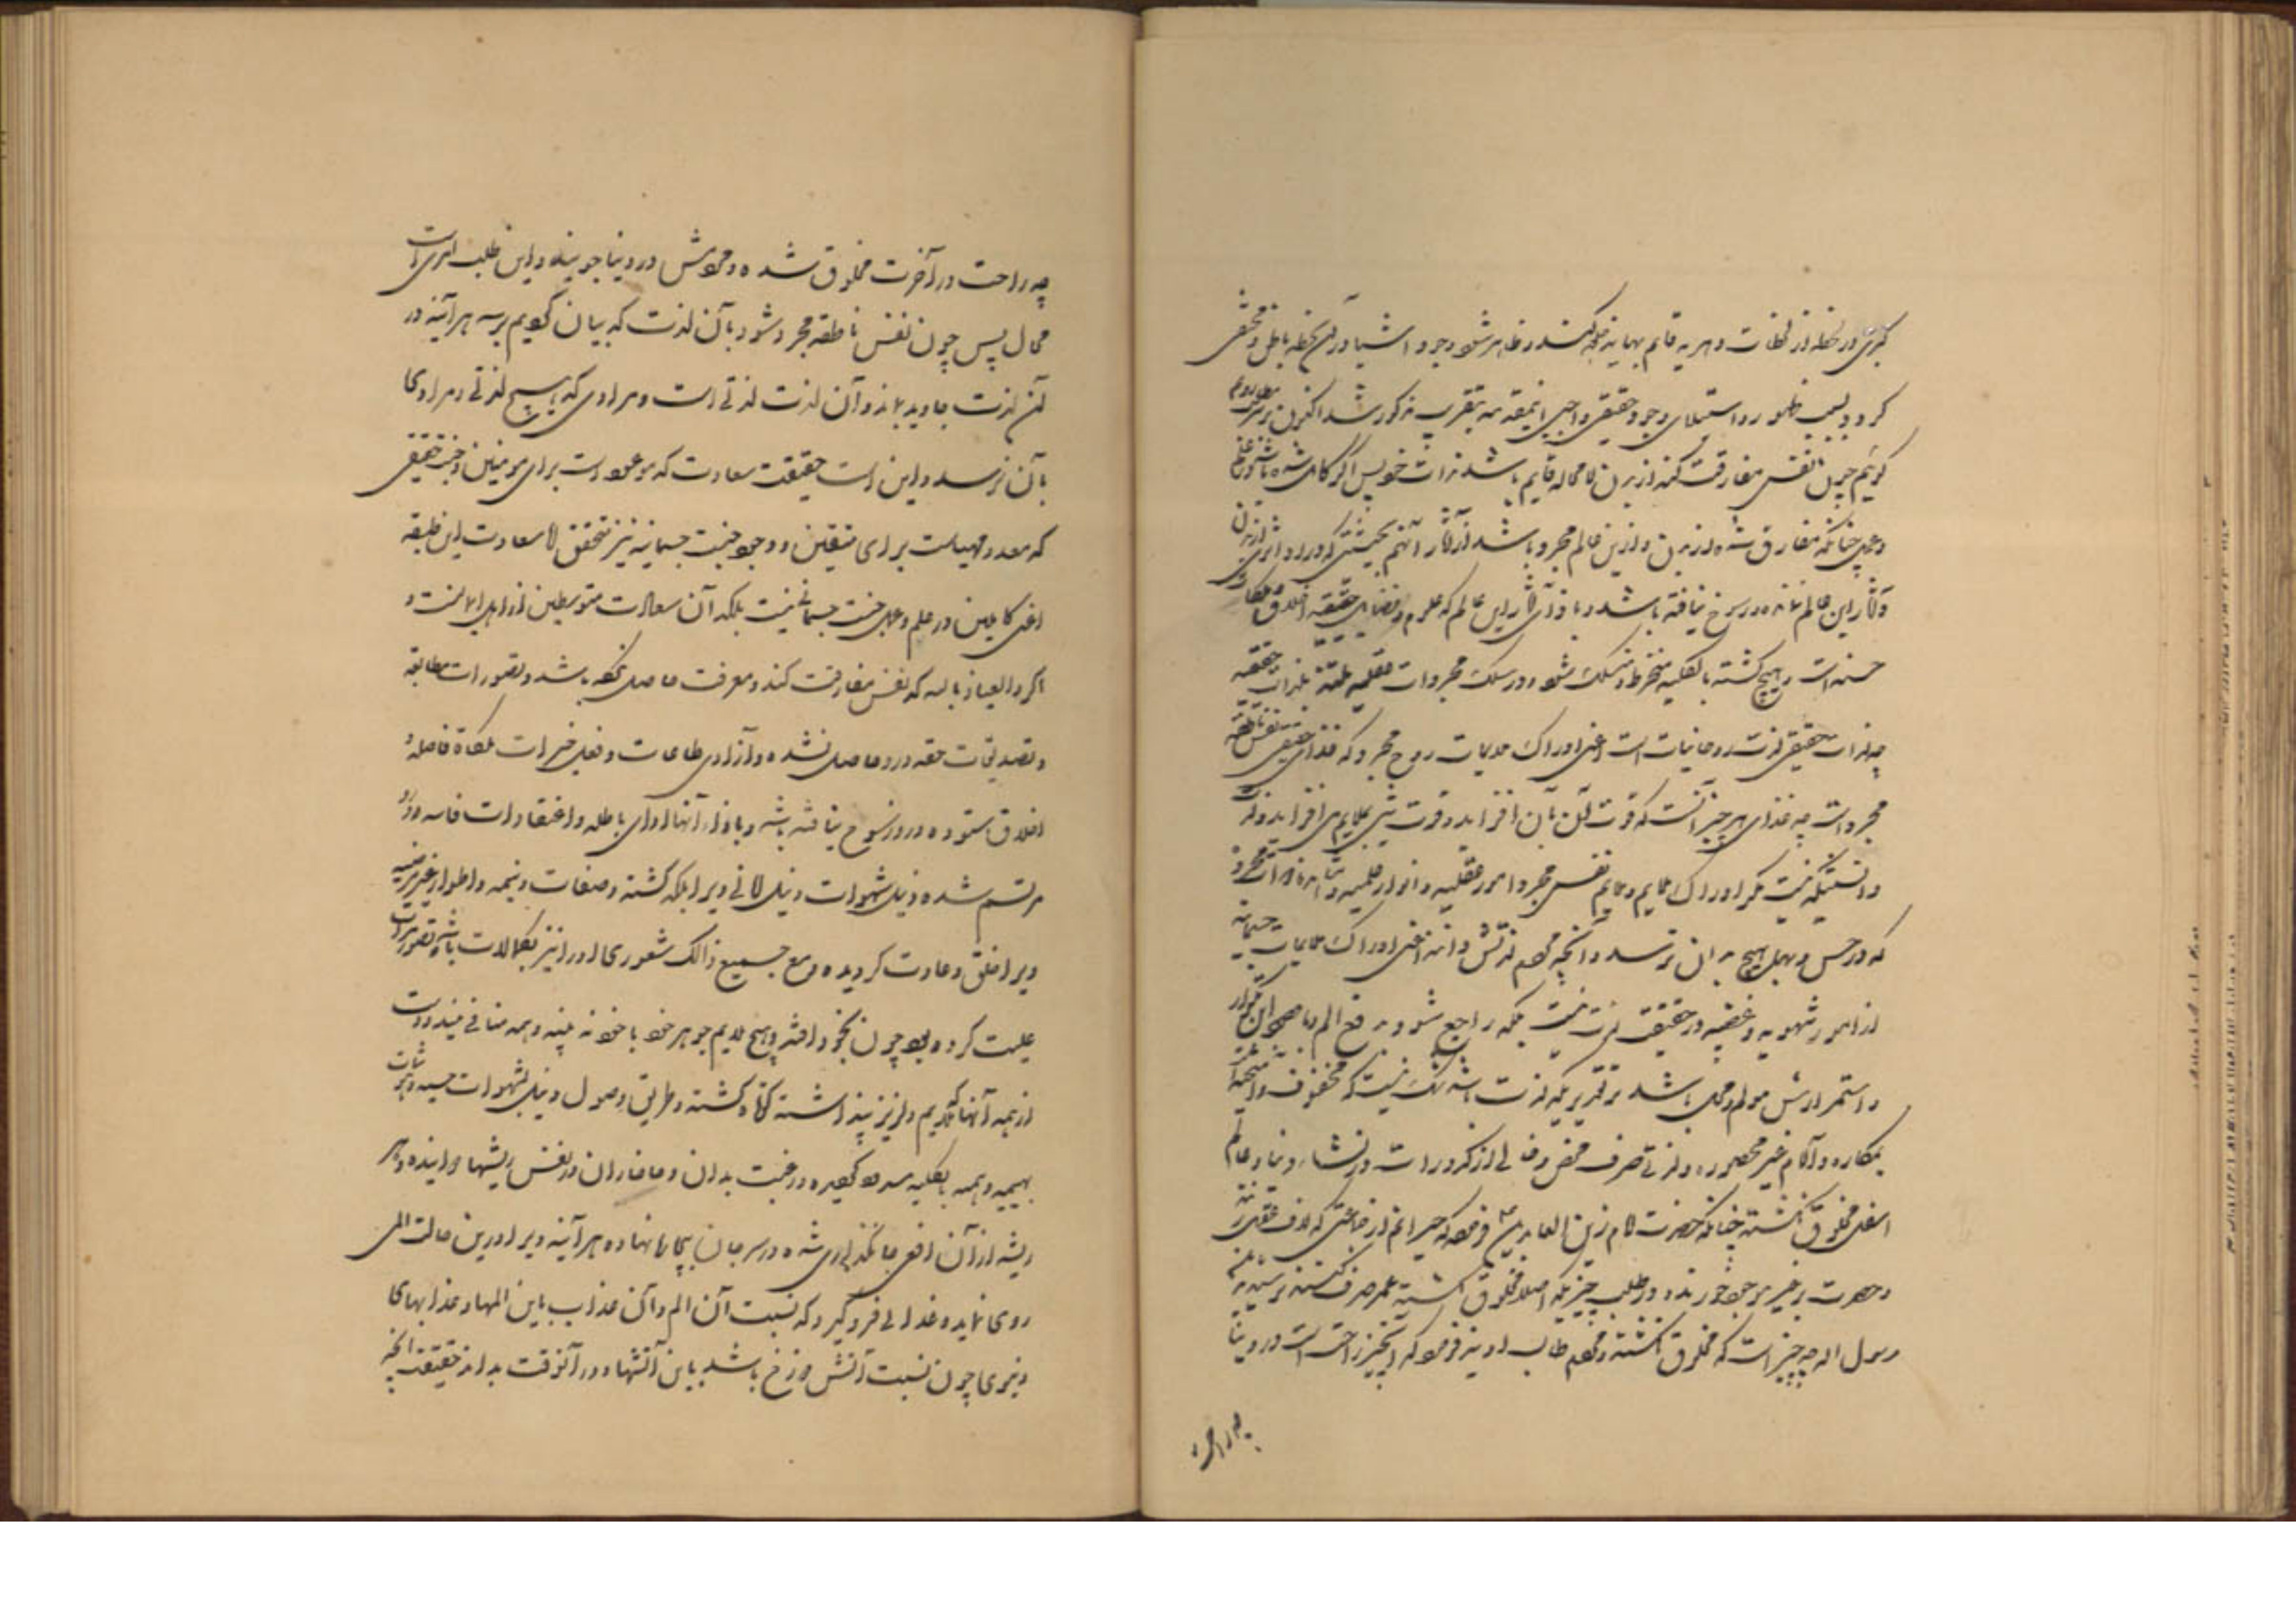 کبری در لحظه از لحظات دهریه قایم بهمانه جلوه کند و ظاهر شود وجود اشیا در آن لحظه باطل و مختفی
کردد بسبب ظهور و استیلای وجود حقیقی واجبی اینمقدمه بتقریب مذکور شد اکنون بر سر مطلب رویم
کوئیم چون نفس مفارقت کند از بدن لامحاله قایم باشد بذات خویش اکر کامل شده باشد در علم
و عمل چنانکه مفارق شده از بدن و ازین عالم مجرد باشد از آثار آنهم بحیثیتی که او را اثری از بدن
و آثار این عالم نمانده و رسوخ نیافته باشد و باز آثار این عالم که علوم و فضایل حقیقیه اخلاق و ملکات
حسنه است هیچ کشته بالکلیه منخرط و منسلک شود در سلک مجردات عقلیه ملتذ بلذات حقیقیه
چه لذات حقیقی لذت روحانیات است اعنی ادراک ملایمات روح مجرد که غذای حقیقی نفس ناطقه
مجرد است چه غذای هر چیز آنست که قوت آن بآن افزاید و قوت شیء بملایم می افزاید و لذت
دانستیکه نیست مکر ادراک ملایم و ملایم نفس مجرد امور عقلیه و انوار علمیه و مشاهده ذوات مجرده
که در حس و بهمل هیچ بدان نرسد و آنچه مردم لذتش دانند اعنی ادراک ملایمات جسمانیه
از امور شهویه و غضبیه در حقیقت لذت نیست بلکه راجع شود به رفع الم با صحو این مقدار
و استمرارش مولم و مملّ باشد بر تقدیریکه لذت باشد شک نیست که محفوف و ممتحن است
بمکاره و آلام غیر محصوره و لذتی صرف محض و خالی از کدورات در نشاء دنیا و عالم
اسفل مخلوق نکشته چنانکه حضرت امام زین العابدین ع فرموده که حیرانم از جماعتی که لاف عقل زنند
و حسرت بر غیر موجود خورند و در طلب چیزیکه اصلا مخلوق نکشته عمر صرف کنند پرسیدند یابن
رسول الله چه چیز است که مخلوق نکشته و مردم طالب اویند فرمود که آنچیز راحت است در دنیا
چه راحت
چه راحت در آخرت مخلوق شده و مردمش در دنیا جویند و این طلب امری است
محال پس چون نفس ناطقه مجرد شود بآن لذت که بیان کویم برسد هرآینه در
آن لذت جاوید بماند و آن لذت لذتی است و مرادی که هیچ لذتی و مرادی
بآن نرسد و این است حقیقت سعادت که موعود است برای مومنین و جنت حقیقی
که معد و مهیاست برای متقین و وجود جنت جسمانیه نیز متحقق لا سعادت این طبقه
اعنی کاملین در علم و عمل جنت جسمانی نیست بلکه آن سعادت متوسطین از اهل ایمانست و
اکر والعیاذ بالله که نفس مفارقت کند و معرفت حاصل نکرده باشد و تصورات مطابقه
و تصدیقات حقه در و حاصل نشده و آزادی طاعات و فعل خیرات ملکات فاضله و
اخلاق ستوده در و رسوخ نیافته باشد و بازاء آنها ادوای باطله و اعتقادات فاسده درو
مرتسم شده و نیل شهوات و نیل لذاتی ویرا ملکه کشته و صفات ذمیمه و اطوار غیر مرضیه
ویرا خلق و عادت کردیده و مع جمیع ذالک شعوری او را نیز بکمالات باشد و تصور لذت
علمیت کرده بود چون بخود افتد و هیچ ملایم جوهر خود با خود نه بیند و همه منافی بیند و دست
از همه آنها که ملایم و لذیذ پنداشته کوتاه کشته و طریق وصول و نیل بشهوات حسیه و لذات
بهیمیه و همه بالکلیه مسدود کردیده و رغبت بدان و مافاران در نفس ریشها دوانیده و هر
ریشه از آن افعی جانکدازی شده در سر جان بیچاره نهاده هرآینه ویرا در این حالت المی
روی نماید و عذابی فرو کیرد که نسبت آن الم و آن عذاب باین المها و عذابهای
دنیوی چون نسبت آتش دوزخ باشد باین آتشها و در آنوقت بداند حقیقت آنچه